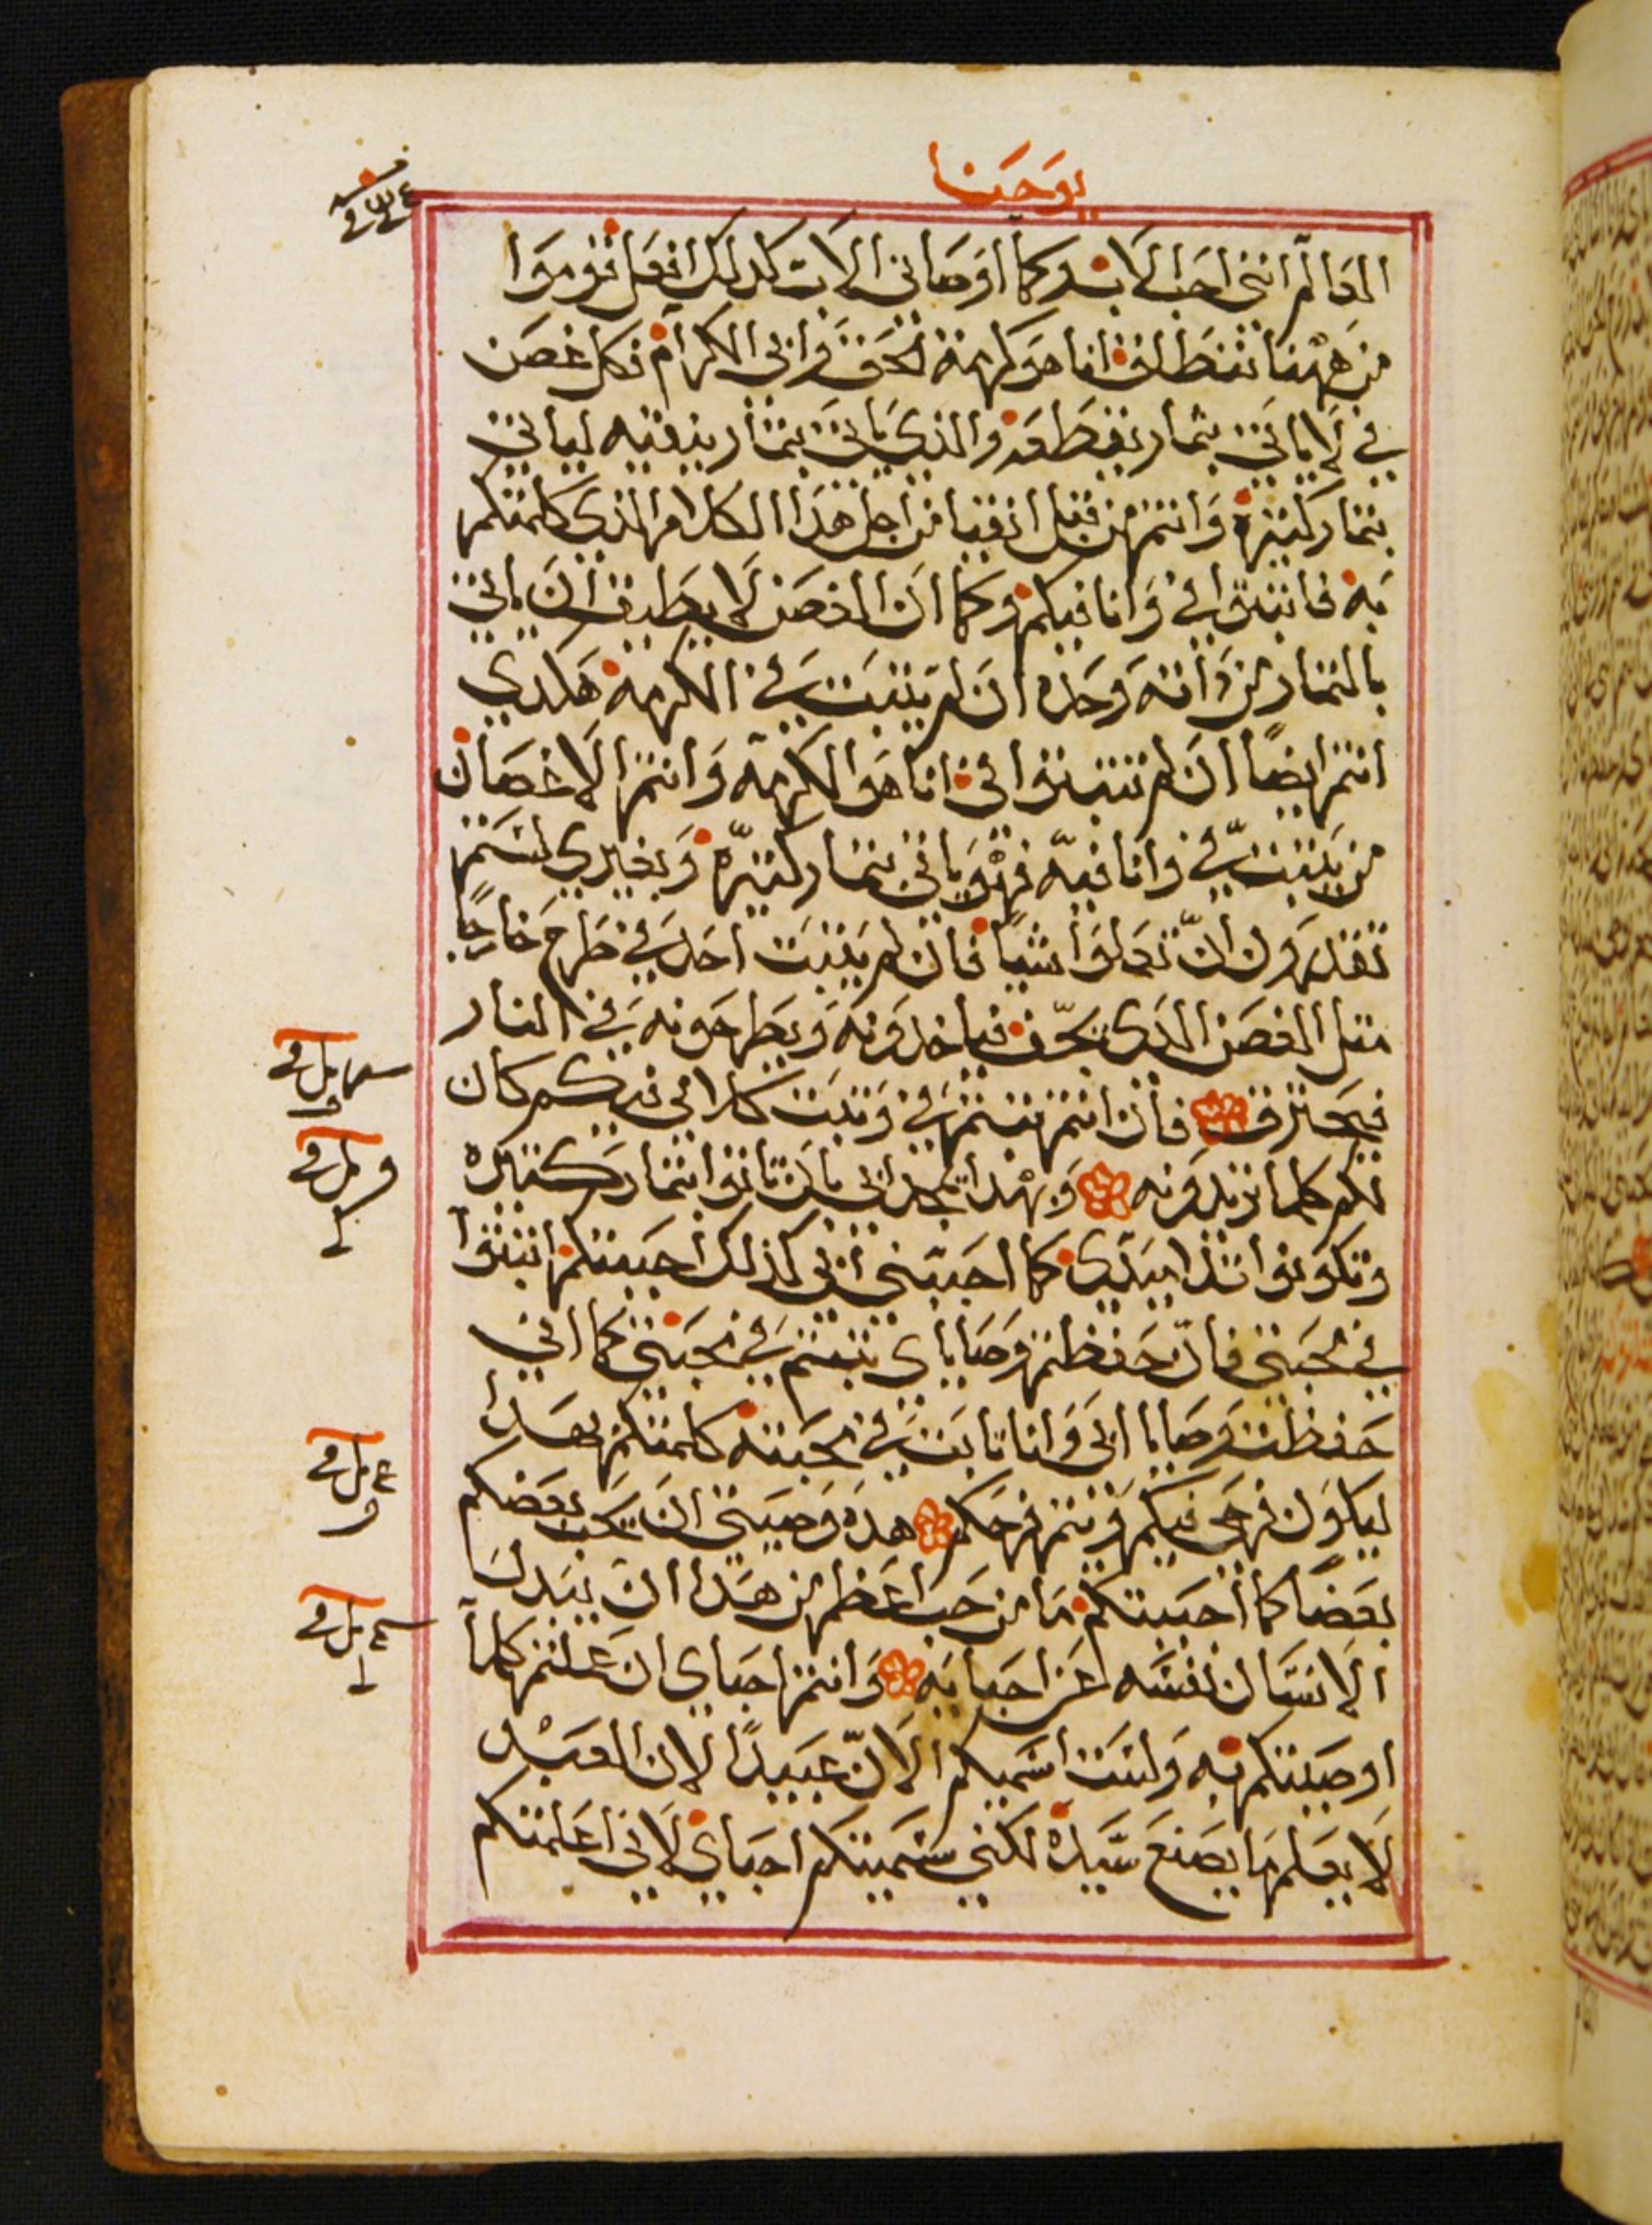 يوحنا
العالم انني احب الاب وكما اوصاني الاب كدلك افعل قوموا
من ههنا ننطلق انا هو كرمة الحق وابي الكرام فكل غصن
في لا ياتي بثمار يقطعه والذي ياتي بثمار ينقيه لياتي
بثمار كثيرة وانتم من قبل انقيا من اجل هذا الكلام الذي كلمتكم
به فاثبتوا في وانا فيكم وكما ان الغصن لا يطيق ان ياتي
بالثمار من ذاته وحده ان لم يثبت في الكرمه هكدي
انتم ايضًا ان لم تثبتوا في انا هو الكرمه وانتم الاغصان
من يثبت في وانا فيه فهو ياتي بثمار كثيره وبغيري لستم
تقدرون ان تعملوا شيا فان لم يثبت احد في طرح خارجًا
مثل الغصن الدي يجف فياخدونه ويطرحونه في النار
فيحترق فان انتم ثبتم في وثبت كلامي فيكم كان
لكم كلما تريدونه وبهدا يمجد ابي بان تاتوا بثمار كثيره
وتكونوا تلاميدي كما احبني ابي كذلك احببتكم اثبتوا
في محبتي فان حفظتم وصاياي ثبتم في محبتي كما اني
حفظت وصايا ابي وانا ثابت في محبته كلمتكم بهدا
ليكون فرحي فيكم ويتم فرحكم هده وصيتي ان يحب بعضكم
بعضًا كما احببتكم ما من حب اعظم من هدا ان يبدل
الانسان نفسه عن احبايه وانتم احباي ان عملتم كلما
اوصيتكم به ولست اسميكم الان عبيدًا لان العبد
لا يعلم ما يصنع سيده لكنني سميتكم احباي لاني اعلمتكم